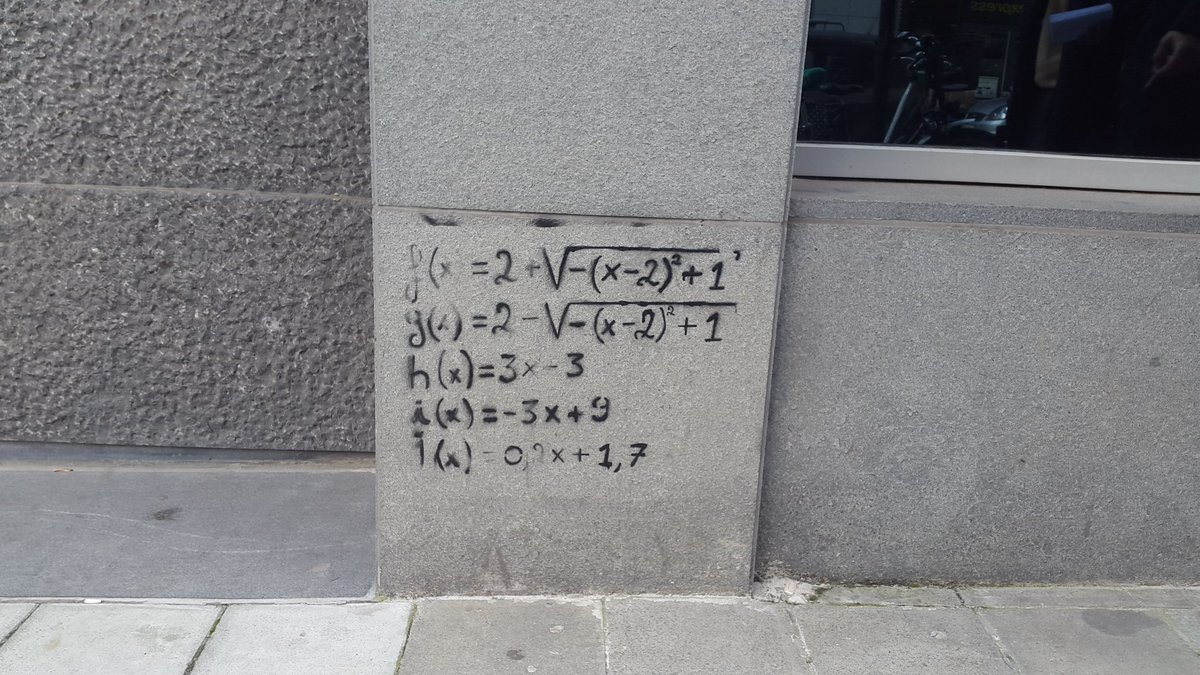 express
f(x =2+√-(x-2)²+1
g(x)=2-√-(x-2)²+1
h(x)=3x-3
i(x)=-3x+9
j(x)-0,2x+1,7